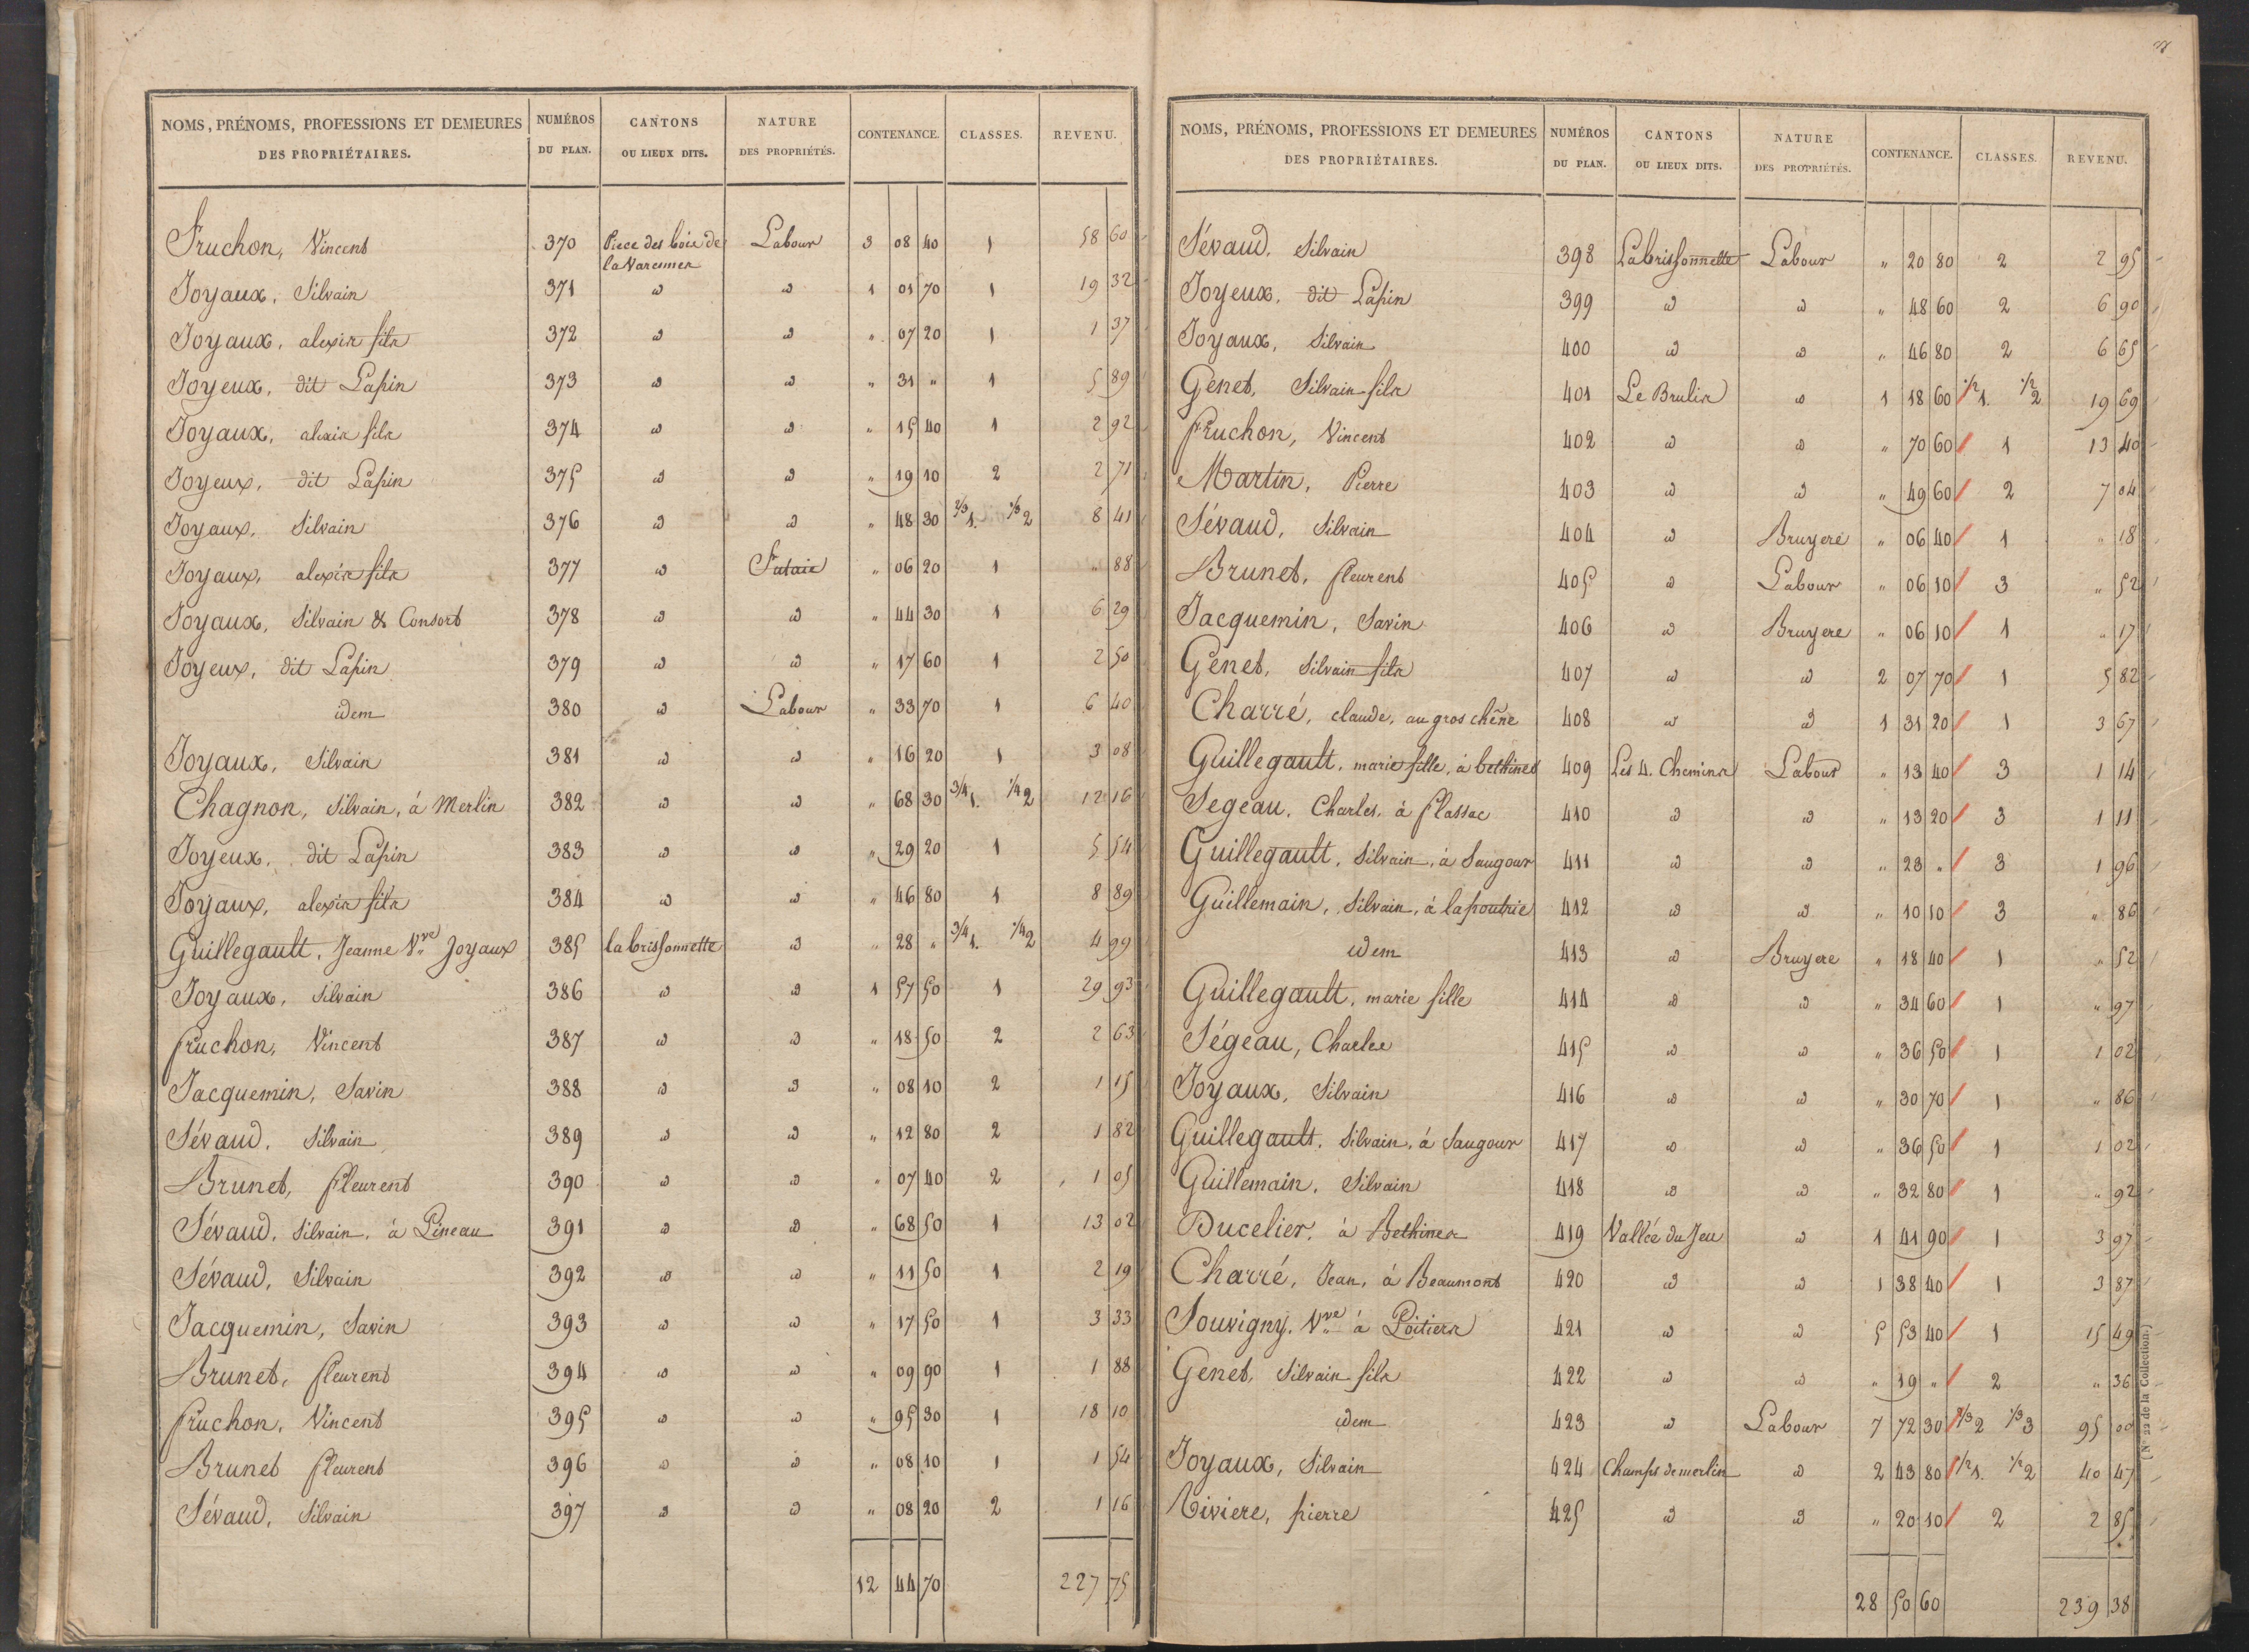 NOMS, PRÉNOMS, PROFESSIONS ET DEMEURES DES PROPRIÉTAIRES. NUMÉROS DU PLAN. CANTONS OU LIEUX DITS. NATURE DES PROPRIÉTÉS. CONTENANCE. CLASSES. REVENU.
Fruchon, Vincent 370 Piece des bois de la Varennes Labour 3 08 40 1 58 60
Joyaux, Silvain 371 id id 1 01 70 1 19 32
Joyaux, alexis fils 372 id id " 07 20 1 1 37
Joyeux, dit Lapin 373 id id " 31 " 1 5 89
Joyaux, alexis fils 374 id id " 15 40 1 2 92
Joyeux, dit Lapin 375 id id " 19 10 2 2 71
Joyaux, Silvain 376 id id " 48 30 2/3 1. 1/3 2 8 41
Joyaux, alexis fils 377 id Futaie " 06 20 1 " 88
Joyaux, Silvain & Consort 378 id id " 44 30 1 6 29
Joyeux, dit Lapin 379 id id " 17 60 1 2 50
idem 380 id Labour " 33 70 1 6 40
Joyaux, Silvain 381 id id " 16 20 1 3 08
Chagnon, Silvain, à Merlin 382 id id " 68 30 3/4 1. 1/4 2 12 16
Joyeux, dit Lapin 383 id id " 29 20 1 5 54
Joyaux, alexis fils 384 id id " 46 80 1 8 89
Guillegault, Jeanne Vve Joyaux 385 la brissonnette id " 28 " 3/4 1. 1/4 2 4 99
Joyaux, Silvain 386 id id 1 57 50 1 29 93
fruchon, Vincent 387 id id " 18 50 2 2 63
Jacquemin, Savin 388 id id " 08 10 2 1 15
Sévaud, Silvain 389 id id " 12 80 2 1 82
Brunet, fleurent 390 id id " 07 40 2 1 05
Sévaud, Silvain, à Pineau 391 id id " 68 50 1 13 02
Sévaud, Silvain 392 id id " 11 50 1 2 19
Jacquemin, Savin 393 id id " 17 50 1 3 33
Brunet, fleurent 394 id id " 09 90 1 1 88
fruchon, Vincent 395 id id " 95 30 1 18 10
Brunet fleurent 396 id id " 08 10 1 1 54
Sévaud, Silvain 397 id id " 08 20 2 1 16
12 44 70 227 75
NOMS, PRÉNOMS, PROFESSIONS ET DEMEURES DES PROPRIÉTAIRES. NUMÉROS DU PLAN. CANTONS OU LIEUX DITS. NATURE DES PROPRIÉTÉS. CONTENANCE. CLASSES. REVENU.
Sévaud, Silvain 398 La brissonnette Labour " 20 80 2 2 95
Joyeux, dit Lapin 399 id id " 48 60 2 6 90
Joyaux, Silvain 400 id id " 46 80 2 6 65
Genet, Silvain fils 401 Le Brulis id 1 18 60 1/2 1. 1/2 2 19 69
fruchon, Vincent 402 id id " 70 60 1 13 40
Martin, Pierre 403 id id " 49 60 2 7 04
Sévaud, Silvain 404 id Bruyere " 06 40 1 " 18
Brunet, fleurent 405 id Labour " 06 10 3 " 52
Jacquemin, Savin 406 id Bruyere " 06 10 1 " 17
Genet, Silvain fils 407 id id 2 07 70 1 5 82
Charré, claude, au gros chêne 408 id id 1 31 20 1 3 67
Guillegault, marie fille, à bethines 409 Les 4. Chemins Labour " 13 40 3 1 14
Segeau, Charles, à flassac 410 id id " 13 20 3 1 11
Guillegault, Silvain, à Saugour 411 id id " 23 " 3 1 96
Guillemain, Silvain, à lapoutrie 412 id id " 10 10 3 " 86
idem 413 id Bruyere " 18 40 1 " 52
Guillegault, marie fille 414 id id " 34 60 1 " 97
Ségeau, Charles 415 id id " 36 50 1 1 02
Joyaux, Silvain 416 id id " 30 70 1 " 86
Guillegault, Silvain, à Saugour 417 id id " 36 50 1 1 02
Guillemain, Silvain 418 id id " 32 80 1 " 92
Ducelier, à Bethines 419 Vallée du Jeu id 1 41 90 1 3 97
Charré, Jean, à Beaumont 420 id id 1 38 40 1 3 87
Souvigny, Vve à Poitiers 421 id id 5 53 40 1 15 49
Genet, Silvain fils 422 id id " 19 " 2 " 36
idem 423 id Labour 7 72 30 2/3 2 1/3 3 95 00
Joyaux, Silvain 424 Champs de merlin id 2 43 80 1/2 1. 1/2 2 40 47
Riviere, pierre 425 id id " 20 10 2 2 85
28 50 60 239 38
(N° 22 de la Collection.)